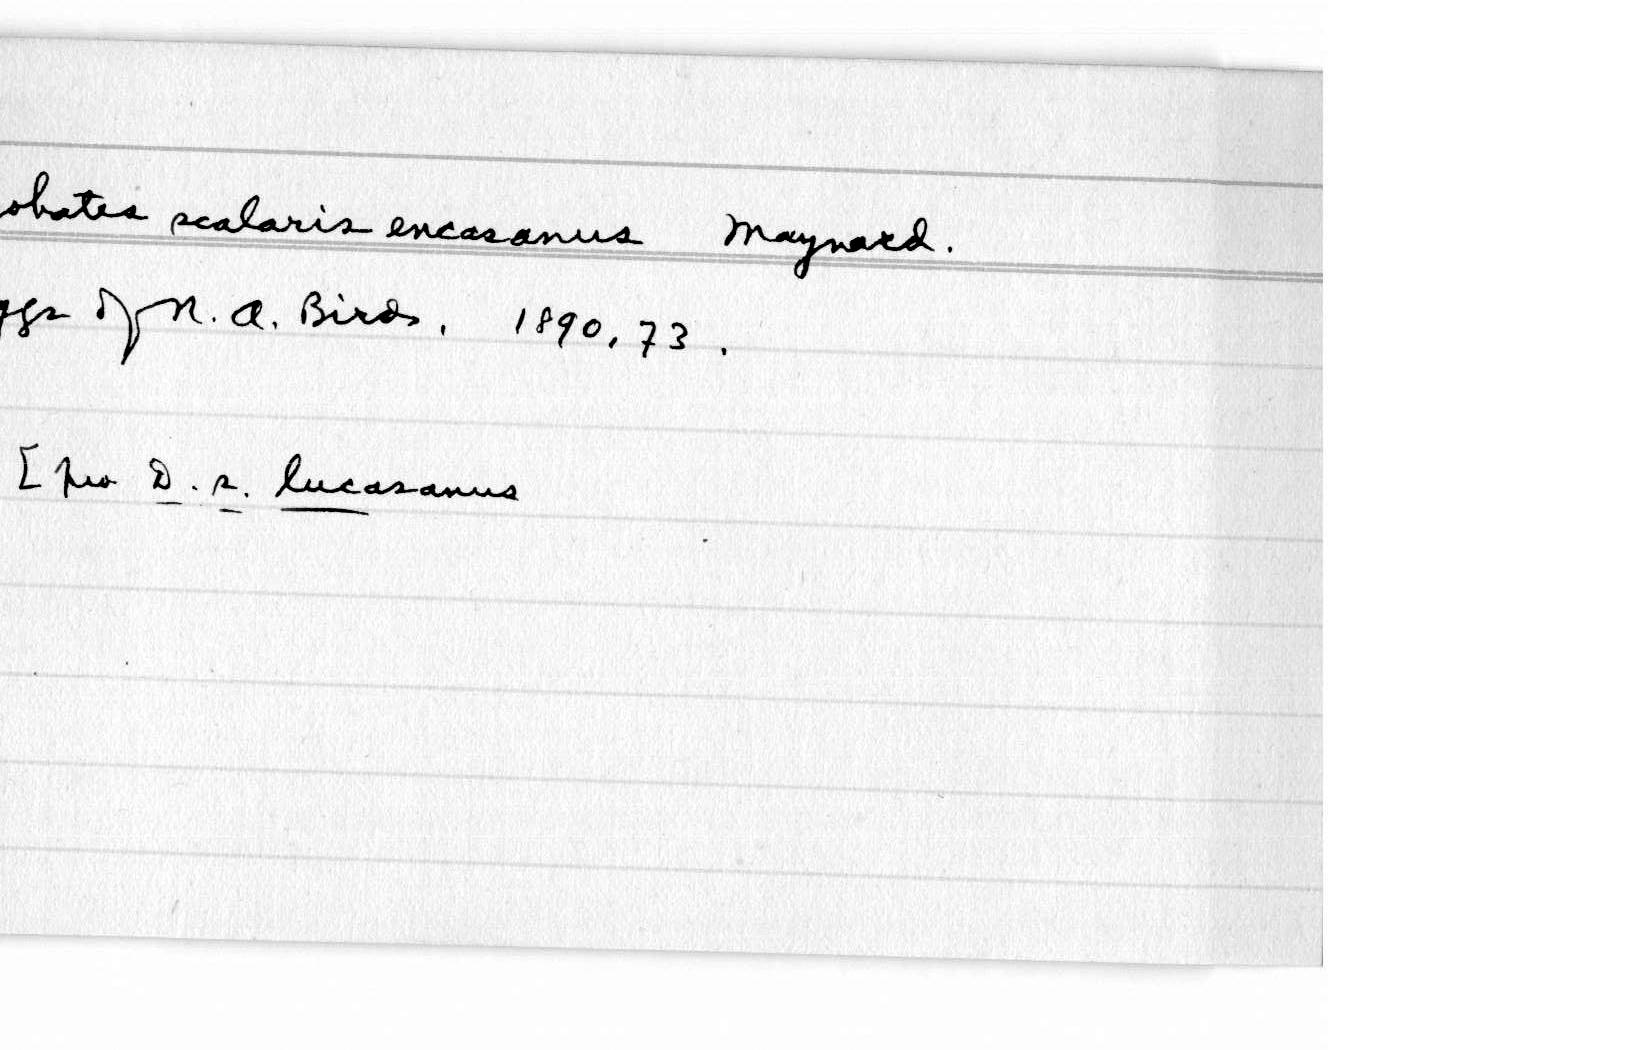 obates scalaris encasanus Maynard.
ggs of N. A. Birds, 1890, 73.
[pro D. s. lucasanus